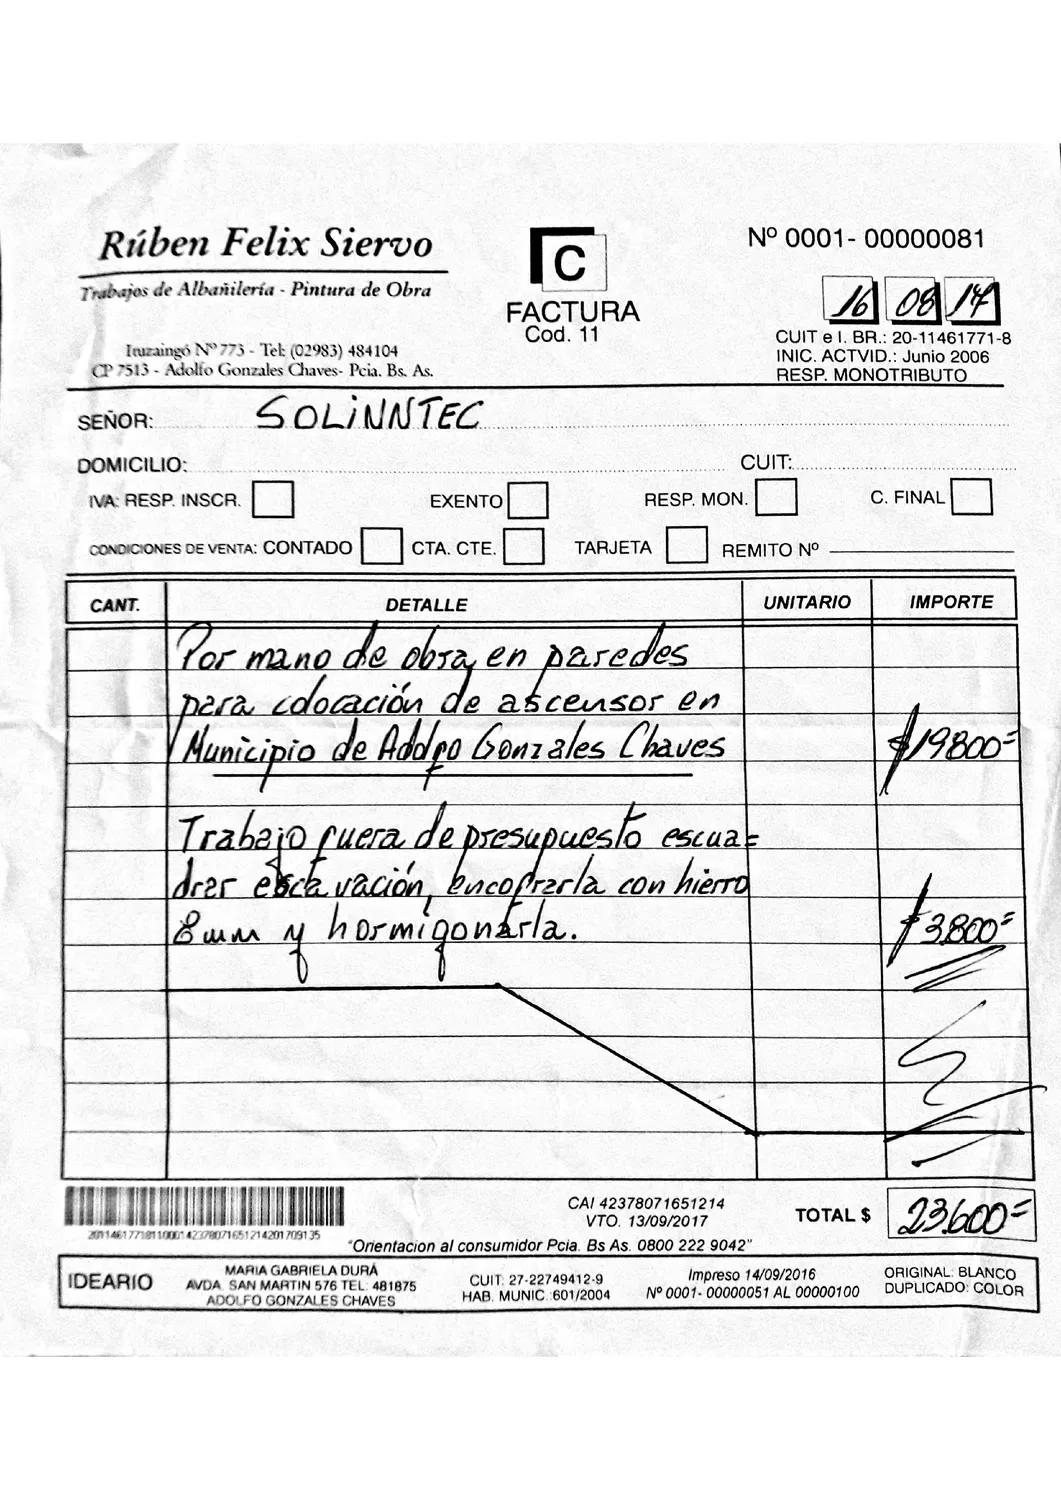 Rúben Felix Siervo
Trabajos de Albañilería - Pintura de Obra
Ituzaingó Nº 773 - Tel: (02983) 484104
CP 7513 - Adolfo Gonzales Chaves- Pcia. Bs. As.
C
FACTURA
Cod. 11
Nº 0001- 00000081
16 08 17
CUIT e I. BR.: 20-11461771-8
INIC. ACTVID.: Junio 2006
RESP. MONOTRIBUTO
SEÑOR: SOLiNNTEC
DOMICILIO: CUIT:
IVA: RESP. INSCR. EXENTO RESP. MON. C. FINAL
CONDICIONES DE VENTA: CONTADO CTA. CTE. TARJETA REMITO Nº
CANT. DETALLE UNITARIO IMPORTE
Por mano de obra en paredes
para colocación de ascensor en
Municipio de Adolfo Gonzales Chaves $19800=
Trabajo fuera de presupuesto escua=
drar escavación, encofrarla con hierro
8mm y hormigonarla. $3.800=
20114617718110001423780716512142017 09135
CAI 42378071651214
VTO. 13/09/2017
TOTAL $ 23.600=
"Orientacion al consumidor Pcia. Bs As. 0800 222 9042"
IDEARIO
MARIA GABRIELA DURÁ
AVDA. SAN MARTIN 576 TEL: 481875
ADOLFO GONZALES CHAVES
CUIT: 27-22749412-9
HAB. MUNIC.:601/2004
Impreso 14/09/2016
Nº 0001- 00000051 AL 00000100
ORIGINAL: BLANCO
DUPLICADO: COLOR